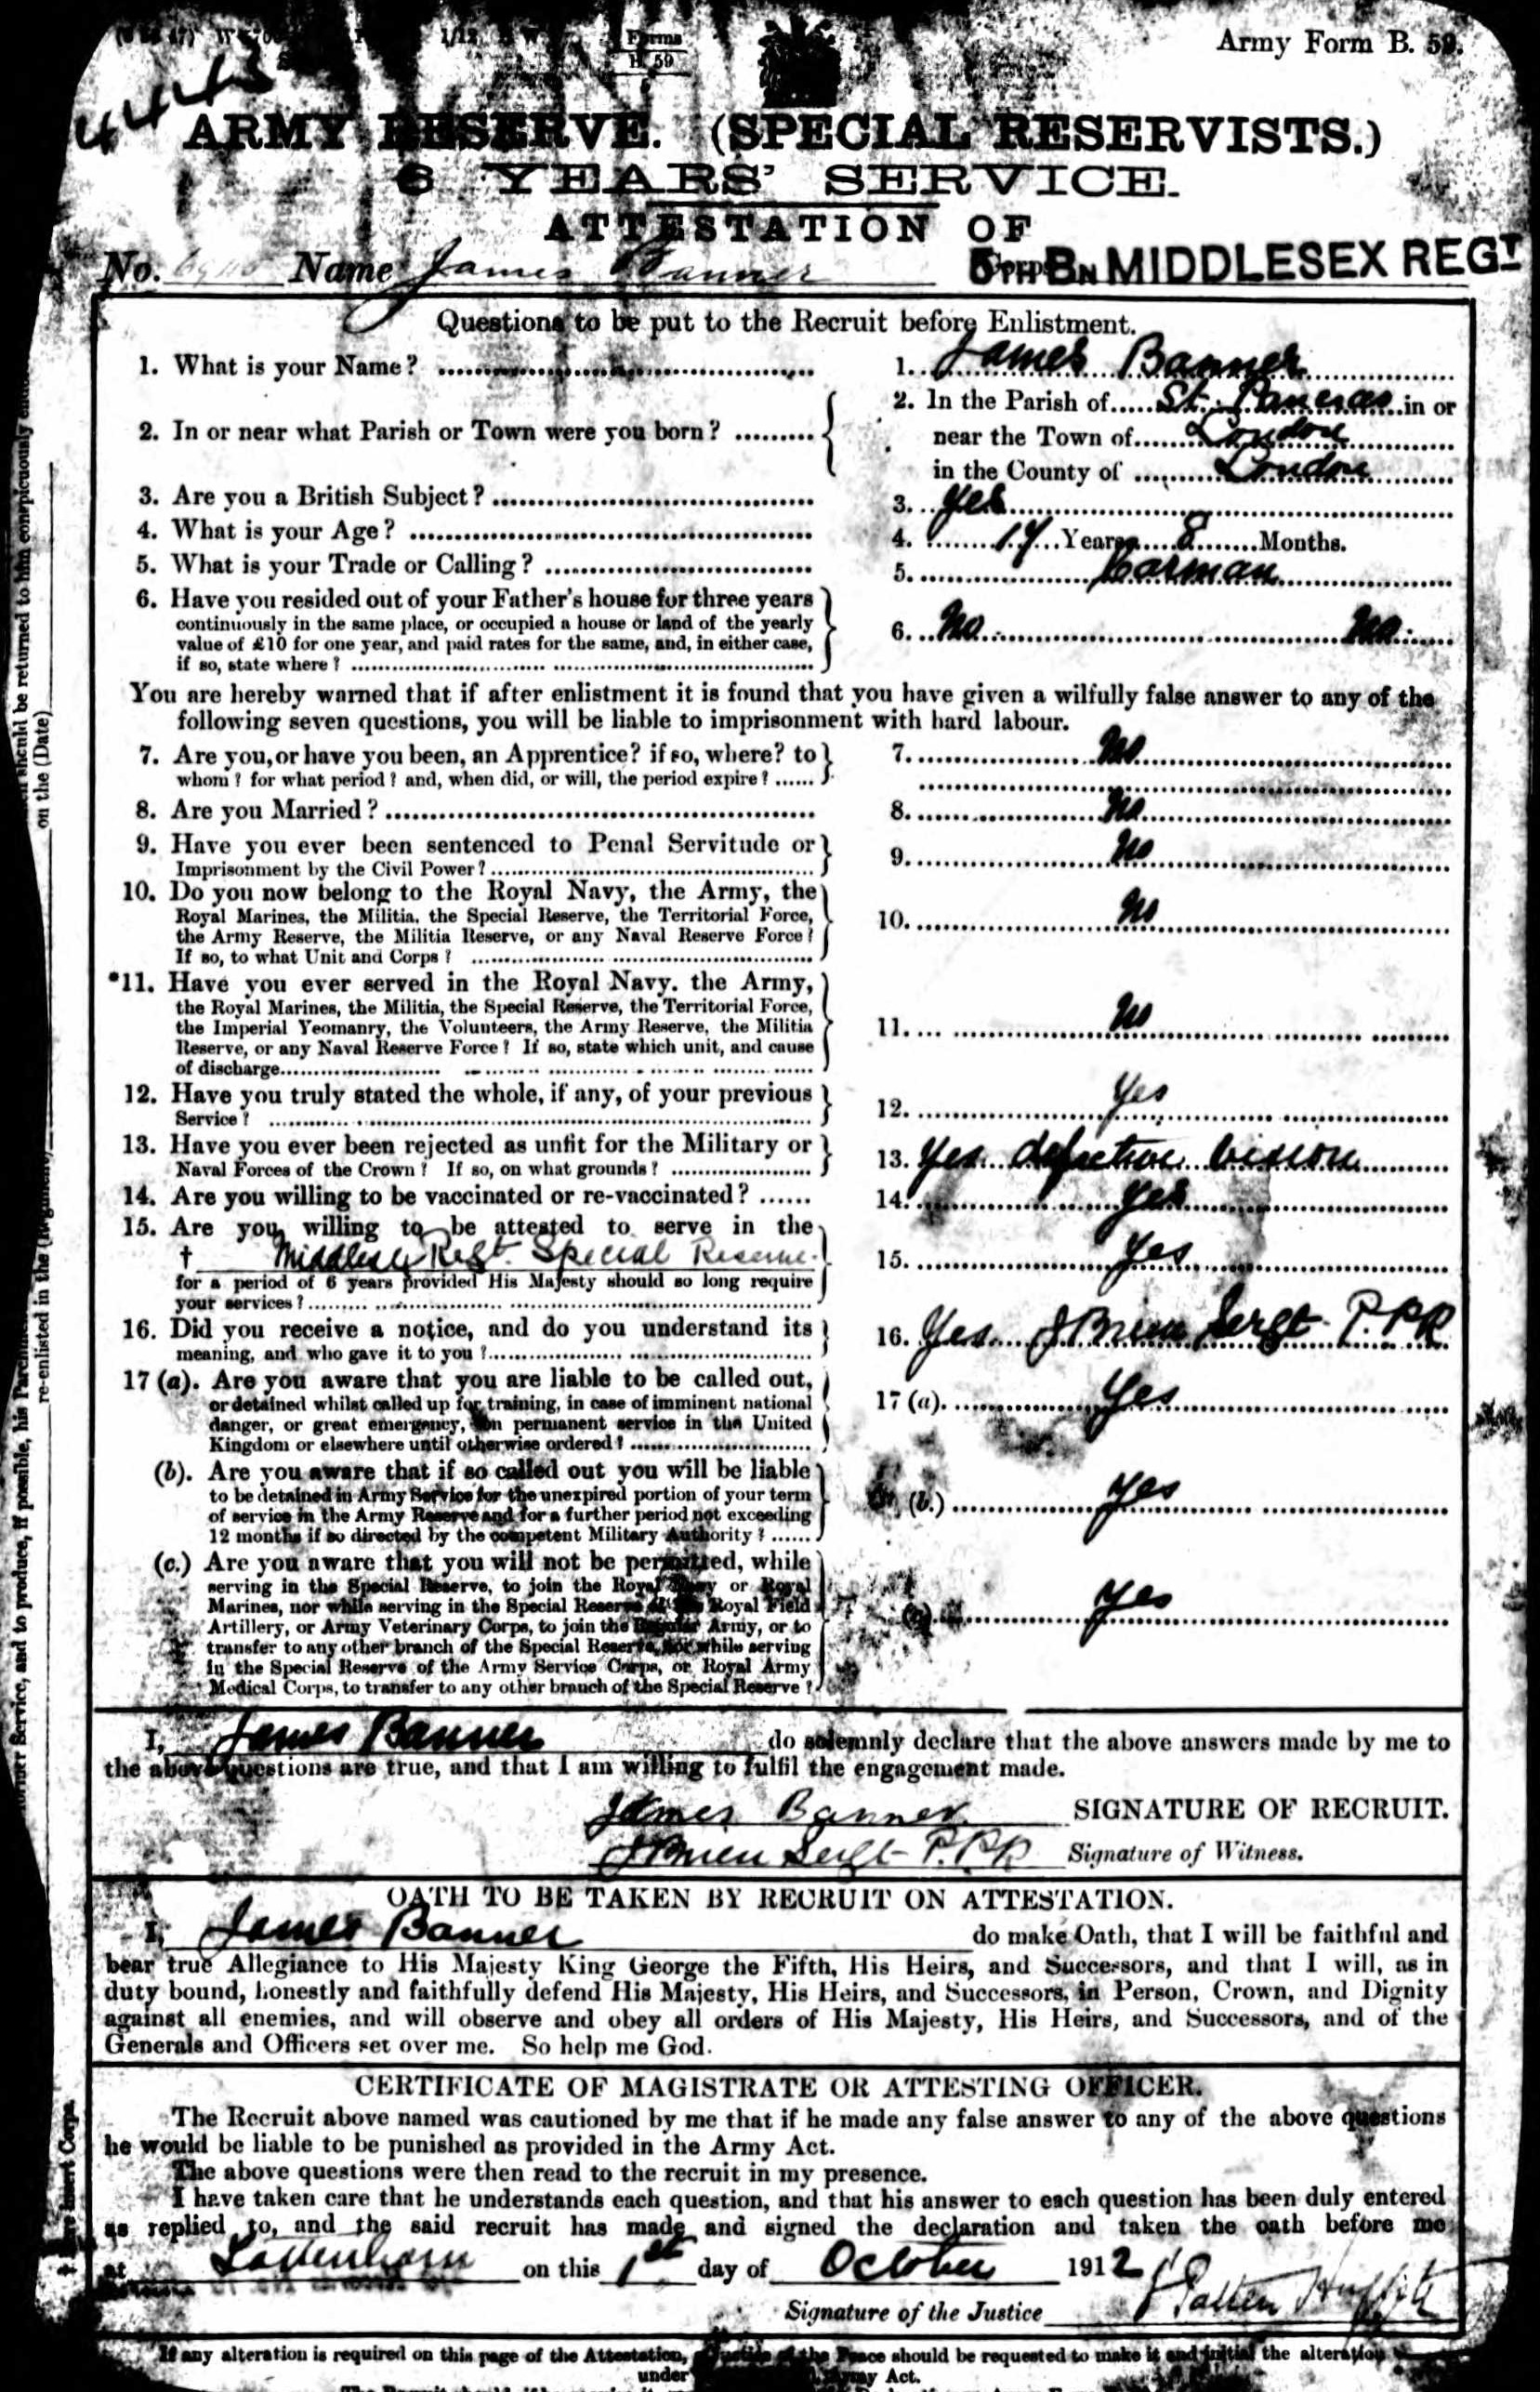 Forms
B. 59
Army Form B. 59.
ARMY RESERVE. (SPECIAL RESERVISTS.)
6 YEARS' SERVICE.
ATTESTATION OF
No. Name James Banner 5TH BN MIDDLESEX REGT
Questions to be put to the Recruit before Enlistment.
1. What is your Name? 1. James Banner
2. In or near what Parish or Town were you born? 2. In the Parish of St. Pancras in or
near the Town of London
in the County of London
3. Are you a British Subject? 3. Yes
4. What is your Age? 4. 17 Years 8 Months.
5. What is your Trade or Calling? 5. Carman
6. Have you resided out of your Father's house for three years
continuously in the same place, or occupied a house or land of the yearly
value of £10 for one year, and paid rates for the same, and, in either case,
if so, state where? 6. No No
You are hereby warned that if after enlistment it is found that you have given a wilfully false answer to any of the
following seven questions, you will be liable to imprisonment with hard labour.
7. Are you, or have you been, an Apprentice? if so, where? to
whom? for what period? and, when did, or will, the period expire? 7. No
8. Are you Married? 8. No
9. Have you ever been sentenced to Penal Servitude or
Imprisonment by the Civil Power? 9. No
10. Do you now belong to the Royal Navy, the Army, the
Royal Marines, the Militia, the Special Reserve, the Territorial Force,
the Army Reserve, the Militia Reserve, or any Naval Reserve Force?
If so, to what Unit and Corps? 10. No
*11. Have you ever served in the Royal Navy, the Army,
the Royal Marines, the Militia, the Special Reserve, the Territorial Force,
the Imperial Yeomanry, the Volunteers, the Army Reserve, the Militia
Reserve, or any Naval Reserve Force? If so, state which unit, and cause
of discharge 11. No
12. Have you truly stated the whole, if any, of your previous
Service? 12. Yes
13. Have you ever been rejected as unfit for the Military or
Naval Forces of the Crown? If so, on what grounds? 13. Yes defective vision
14. Are you willing to be vaccinated or re-vaccinated? 14. Yes
15. Are you willing to be attested to serve in the
† Middlesex Regt. Special Reserve
for a period of 6 years provided His Majesty should so long require
your services? 15. Yes
16. Did you receive a notice, and do you understand its
meaning, and who gave it to you? 16. Yes Sergt
17 (a). Are you aware that you are liable to be called out,
or detained whilst called up for training, in case of imminent national
danger, or great emergency, on permanent service in the United
Kingdom or elsewhere until otherwise ordered? 17 (a). Yes
(b). Are you aware that if so called out you will be liable
to be detained in Army Service for the unexpired portion of your term
of service in the Army Reserve and for a further period not exceeding
12 months if so directed by the competent Military Authority? (b.) Yes
(c.) Are you aware that you will not be permitted, while
serving in the Special Reserve, to join the Royal Navy or Royal
Marines, nor while serving in the Special Reserve of the Royal Field
Artillery, or Army Veterinary Corps, to join the Regular Army, or to
transfer to any other branch of the Special Reserve, nor while serving
in the Special Reserve of the Army Service Corps, or Royal Army
Medical Corps, to transfer to any other branch of the Special Reserve? (c) Yes
I, James Banner do solemnly declare that the above answers made by me to
the above questions are true, and that I am willing to fulfil the engagement made.
James Banner SIGNATURE OF RECRUIT.
Sergt Signature of Witness.
OATH TO BE TAKEN BY RECRUIT ON ATTESTATION.
I, James Banner do make Oath, that I will be faithful and
bear true Allegiance to His Majesty King George the Fifth, His Heirs, and Successors, and that I will, as in
duty bound, honestly and faithfully defend His Majesty, His Heirs, and Successors, in Person, Crown, and Dignity
against all enemies, and will observe and obey all orders of His Majesty, His Heirs, and Successors, and of the
Generals and Officers set over me. So help me God.
CERTIFICATE OF MAGISTRATE OR ATTESTING OFFICER.
The Recruit above named was cautioned by me that if he made any false answer to any of the above questions
he would be liable to be punished as provided in the Army Act.
The above questions were then read to the recruit in my presence.
I have taken care that he understands each question, and that his answer to each question has been duly entered
as replied to, and the said recruit has made and signed the declaration and taken the oath before me
at Tottenham on this 1st day of October 1912
Signature of the Justice
If any alteration is required on this page of the Attestation, Justice of the Peace should be requested to make it and initial the alteration
under Army Act.
re-enlisted in the
on the (Date)